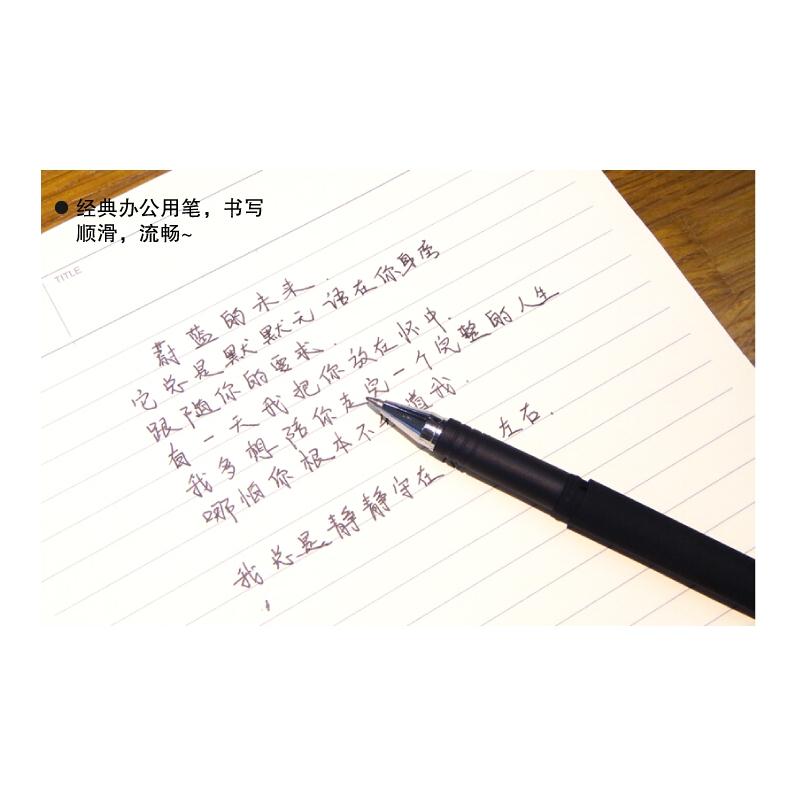 经典办公用笔，书写
顺滑，流畅~
TITLE
蔚蓝的未来.
它总是默默无语在你身旁
跟随你的要求.
有一天我把你放在怀中.
我多想陪你走完一个完整的人生
哪怕你根本不 道我.
我总是静静守在 左右.